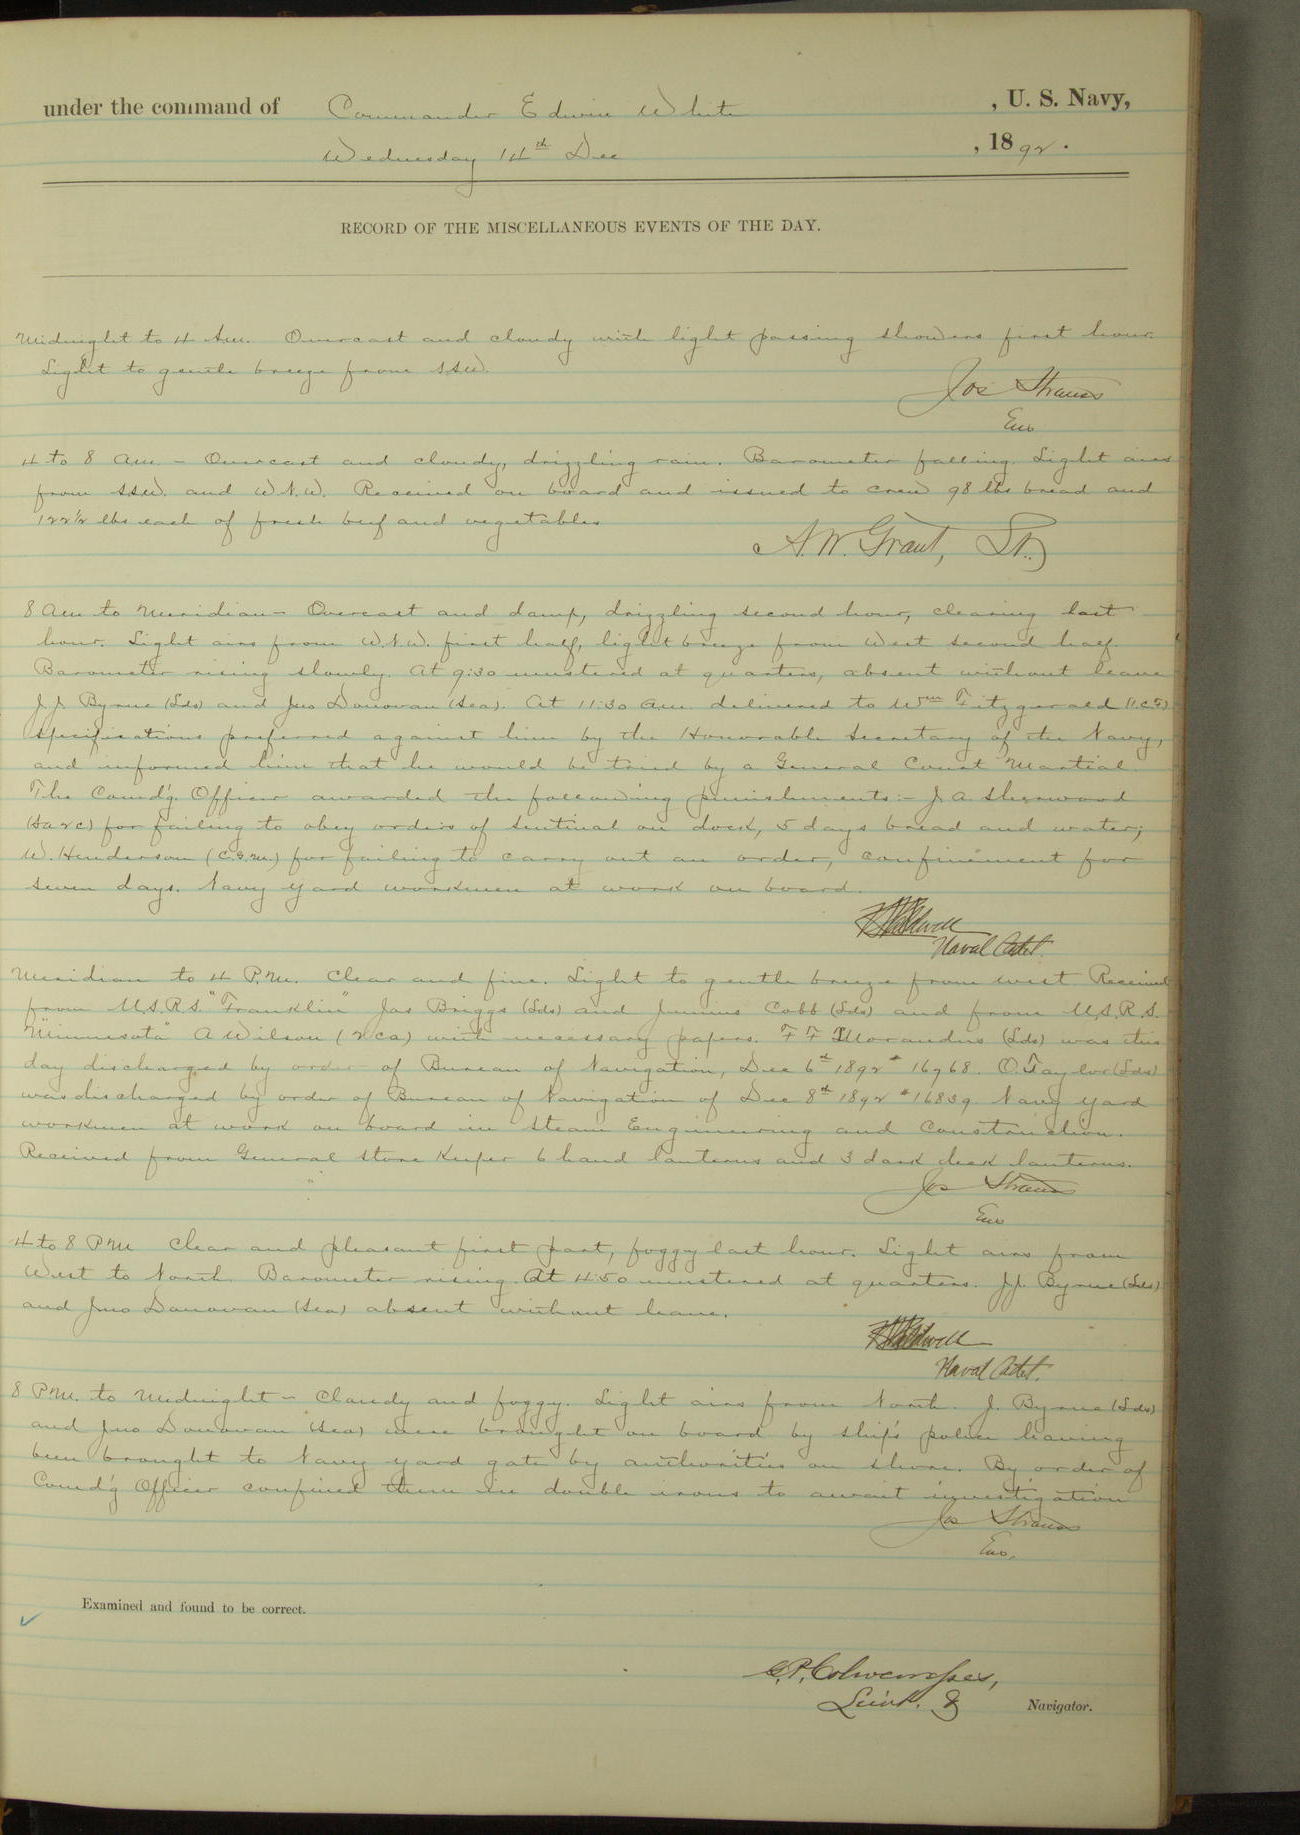 under the command of Commander Edwin White , U. S. Navy,
Wednesday 14th Dec , 1892.
RECORD OF THE MISCELLANEOUS EVENTS OF THE DAY.
Midnight to 4 Am. Overcast and cloudy with light passing showers first hour.
Light to gentle breeze from SSW.
Jos Strauss
Ens
4 to 8 Am. – Overcast and cloudy, drizzling rain. Barometer falling. Light airs
from SSW. and W.N.W. Received on board and issued to crew 98 lbs bread and
122½ lbs each of fresh beef and vegetables
A.W. Grant, Lt.
8 Am to Meridian – Overcast and damp, drizzling second hour, clearing last
hour. Light airs from W.N.W. first half, light breeze from West second half.
Barometer rising slowly. At 9:30 mustered at quarters, absent without leave
J.J. Byrne (Lds) and Jno Donovan (Sea). At 11:30 a.m. delivered to Wm Fitzgerald (1.C.F)
specifications preferred against him by the Honorable Secretary of the Navy,
and informed him that he would be tried by a General Court Martial.
The Comd'g. Officer awarded the following punishments:– J. A. Sherwood
(Sa 2c) for failing to obey orders of sentinal on dock, 5 days bread and water;
W. Henderson (C.G.M.) for failing to carry out an order, confinement for
seven days. Navy yard workmen at work on board.
Naval Cadet.
Meridian to 4 P.M. Clear and fine. Light to gentle breeze from west Received
from U.S.R.S. "Franklin" Jas Briggs (Lds) and Junius Cobb (Lds) and from U.S.R.S.
"Minnesota" A Wilson (2 ca) with necessary papers. F F Morandus (Lds) was this
day discharged by order of Bureau of Navigation, Dec 6th 1892 # 16768. O. Taylor (Lds)
was discharged by order of Bureau of Navigation of Dec 8th 1892 # 16839 Navy yard
workmen at work on board in Steam Engineering and Construction.
Received from General Store Keeper 6 hand lanterns and 3 dark deck lanterns.
Jos Strauss
Ens
4 to 8 PM Clear and pleasant first part, foggy last hour. Light airs from
West to North. Barometer rising. At 4.50 mustered at quarters. J.J. Byrne (Lds)
and Jno Donovan (Sea) absent without leave.
Naval Cadet.
8 P.M. to Midnight – Cloudy and foggy. Light airs from North. J. Byrne (Lds)
and Jno Donovan (Sea) were brought on board by ship's police having
been brought to Navy yard gate by authorities on shore. By order of
Comd'g Officer confined them in double irons to await investigation
Jos Strauss
Ens.
Examined and found to be correct.
Lieut.
Navigator.